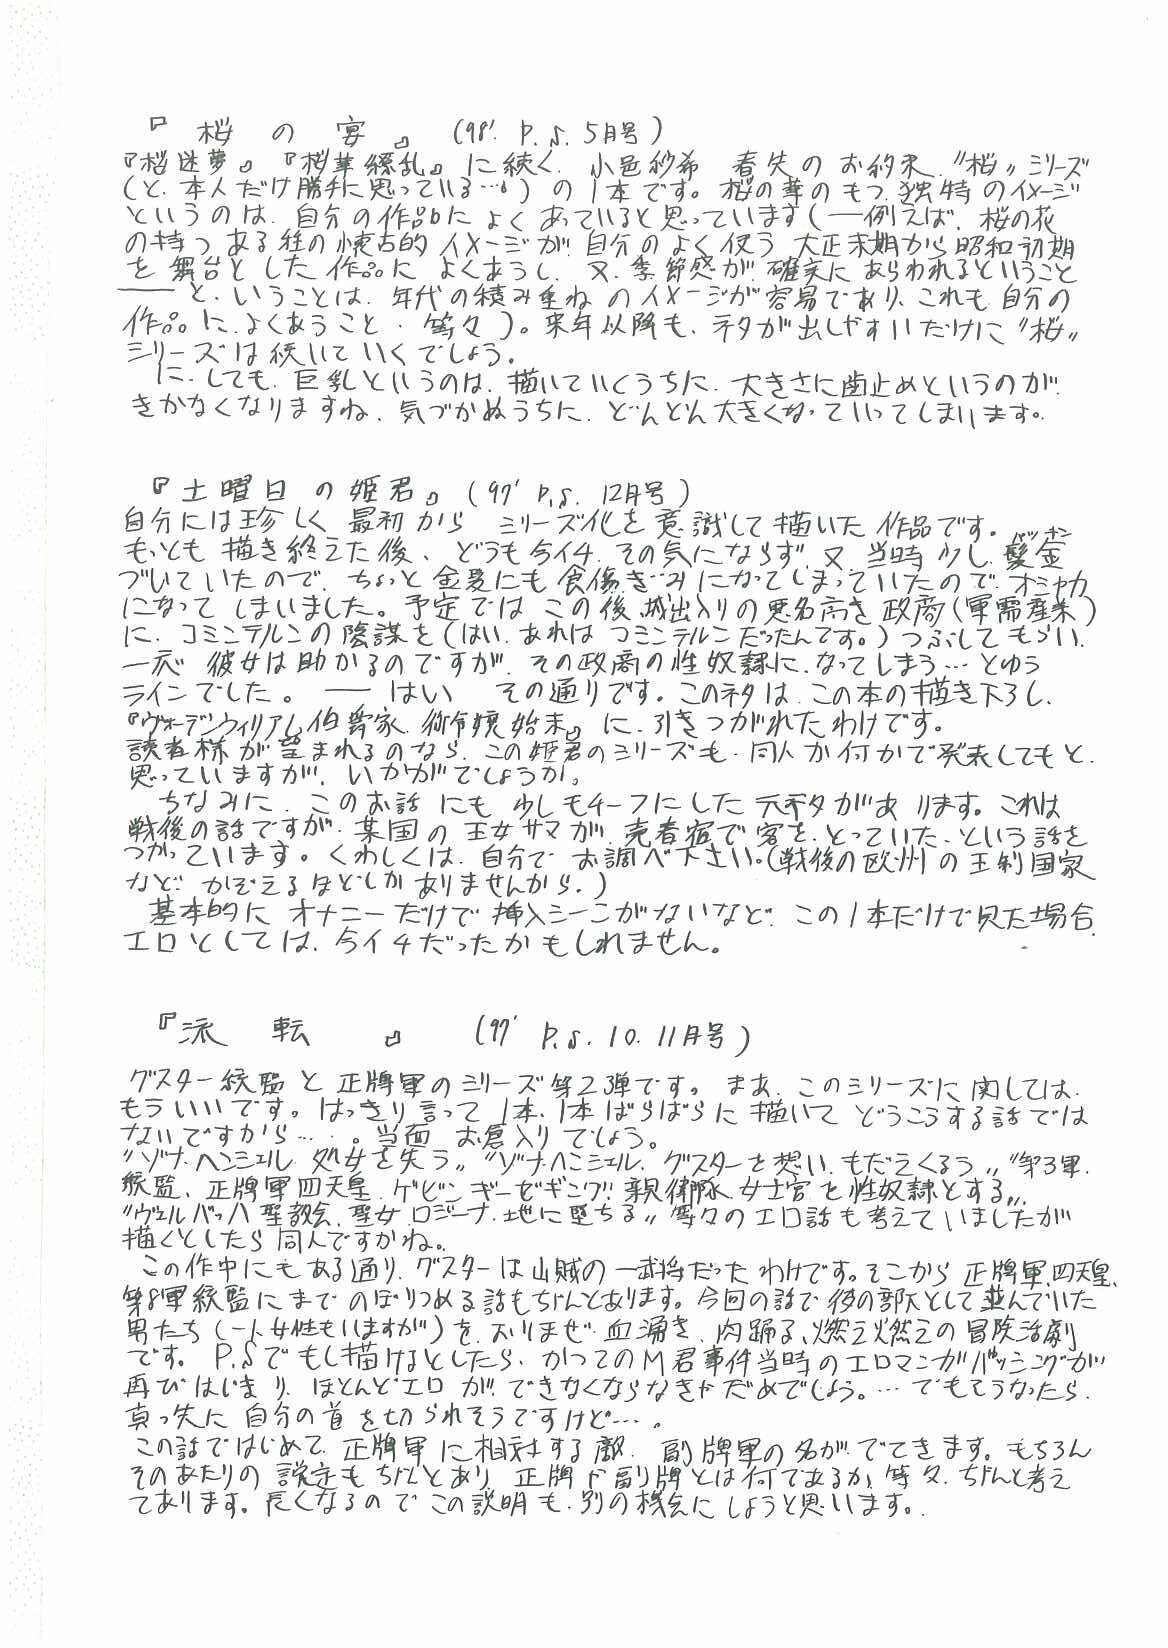 『桜の宴』 (98'. P.S. 5月号)
『桜迷夢』『桜華繚乱』に続く、小邑紗希 春先のお約束、〝桜〟シリーズ
(と、本人だけ勝手に思っている…。)の1本です。桜の華のもつ、独特のイメージ
というのは、自分の作品に よくあっていると思っています(――例えば、桜の花
の持つ ある種の懐古的イメージが、自分のよく使う 大正末期から昭和初期
を舞台とした作品に よくあうし、又、季節感が確実にあらわれるということ
―― と、いうことは、年代の積み重ねのイメージが容易であり、これも自分の
作品に、よくあうこと・等々)。来年以降も、ネタが出しやすいだけに〝桜〟
シリーズは続いていくでしょう。
に、しても、巨乳というのは、描いていくうちに、大きさに歯止めというのが、
きかなくなりますね、気づかぬうちに、どんどん大きくなっていってしまいます。
『土曜日の姫君』(97' P.S. 12月号)
自分には珍しく 最初から シリーズ化を意識して描いた作品です。
もっとも 描き終えた後、どうも今イチ、その気にならず、又、当時 少し、髪金
パッキン
づいていたので、ちょっと金髪にも食傷ぎみになってしまっていたので、オシャカ
になって しまいました。予定では この後、城出入りの悪名高き政商(軍需産業)
に、コミンテルンの陰謀を(はい、あれはコミンテルンだったんです。)つぶしてもらい、
一応 彼女は助かるのですが、その政商の性奴隷に、なってしまう…とゆう
ラインでした。―― はい その通りです。このネタは、この本の描き下ろし、
『ヴォーデンウィリアム伯爵家 御令嬢始末』に、引きつがれたわけです。
読者様が望まれるのなら、この姫君のシリーズも、同人か何かで発表してもと、
思っていますが、いかがでしょうか。
ちなみに、このお話にも 少しモチーフにした元ネタがあります。これは
戦後の話ですが、某国の王女サマが、売春宿で客を、とっていた、という話を
つかっています。くわしくは、自分で お調べ下さい。(戦後の欧州の王制国家
など、かぞえるほどしかありませんから。)
基本的に オナニーだけで 挿入シーンがないなど、この1本だけで見た場合、
エロとしては、今イチだったかもしれません。
『流転』 (97' P.S. 10.11月号)
グスター統監と 正牌軍のシリーズ第2弾です。まあ、このシリーズに関しては、
もういいです。はっきり言って1本、1本ばらばらに描いてどうこうする話では
ないですから…。当面 お倉入りでしょう。
〝ゾナ・ヘンシェル 処女を失う〟〝ゾナ・ヘンシェル、グスターを想い、もだえくるう〟〝第3軍、
統監、正牌軍四天皇、ゲビン・ギーゼギング!! 親衛隊、女士官を性奴隷とする〟、
〝ヴェルバッハ聖教会、聖女、ロジーナ、地に堕ちる〟等々のエロ話も考えていましたが
描くとしたら同人ですかね。
この作中にもある通り、グスターは山賊の一武将だったわけです。そこから正牌軍、四天皇、
第8軍統監にまでのぼりつめる話もちゃんとあります。今回の話で後の部下として並んでいた
男たち(一人女性もいますが)を、おりまぜ、血湧き、肉踊る、燃え燃えの冒険活劇
です。P.Sでもし描けるとしたら、かつてのM君事件当時のエロマンガバッシングが
再びはじまり、ほとんどエロが、できなくならなきゃだめでしょう。…でもそうなったら、
真っ先に自分の首を切られそうですけど…。
この話ではじめて、正牌軍に相対する敵、副牌軍の名が、でてきます。もちろん
そのあたりの設定もちゃんとあり、正牌や副牌とは何であるか、等々、ちゃんと考え
てあります。長くなるのでこの説明も、別の機会にしようと思います。